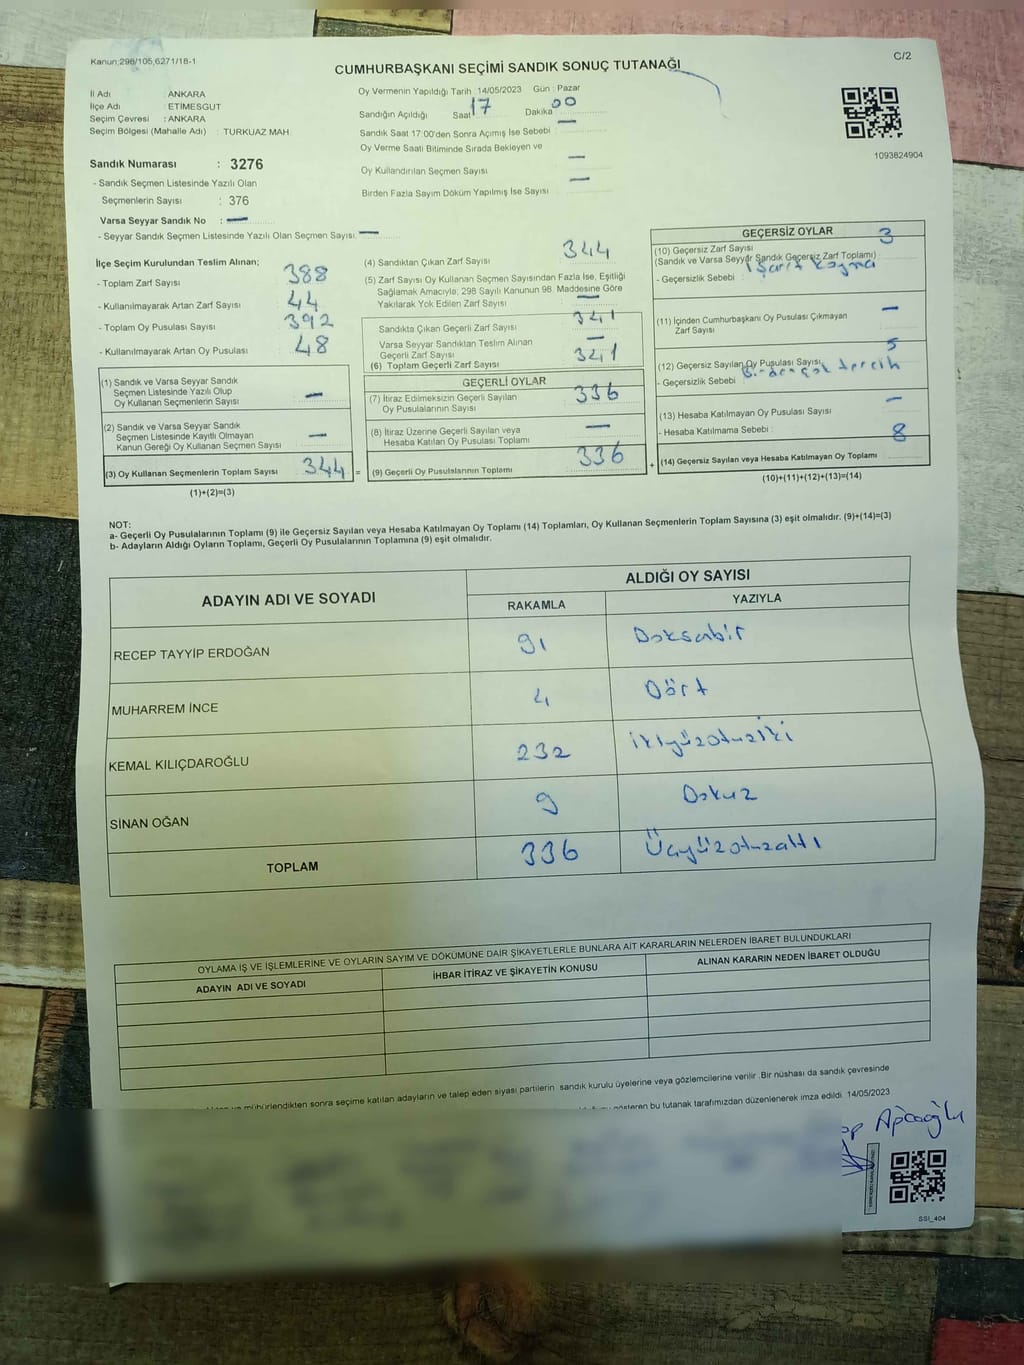 Kanun;298/105,6271/18-1
C/2
CUMHURBAŞKANI SEÇİMİ SANDIK SONUÇ TUTANAĞI
İl Adı : ANKARA
İlçe Adı : ETİMESGUT
Seçim Çevresi : ANKARA
Seçim Bölgesi (Mahalle Adı) : TURKUAZ MAH.
Sandık Numarası : 3276
- Sandık Seçmen Listesinde Yazılı Olan
Seçmenlerin Sayısı : 376
Varsa Seyyar Sandık No : —
- Seyyar Sandık Seçmen Listesinde Yazılı Olan Seçmen Sayısı: —
Oy Vermenin Yapıldığı Tarih : 14/05/2023 Gün : Pazar
Sandığın Açıldığı Saat 17 Dakika 00
Sandık Saat 17:00'den Sonra Açımış İse Sebebi : —
Oy Verme Saati Bitiminde Sırada Bekleyen ve
Oy Kullandırılan Seçmen Sayısı —
Birden Fazla Sayım Döküm Yapılmış İse Sayısı —
1093824904
İlçe Seçim Kurulundan Teslim Alınan;
- Toplam Zarf Sayısı 388
- Kullanılmayarak Artan Zarf Sayısı 44
- Toplam Oy Pusulası Sayısı 392
- Kullanılmayarak Artan Oy Pusulası 48
(1) Sandık ve Varsa Seyyar Sandık
Seçmen Listesinde Yazılı Olup
Oy Kullanan Seçmenlerin Sayısı —
(2) Sandık ve Varsa Seyyar Sandık
Seçmen Listesinde Kayıtlı Olmayan
Kanun Gereği Oy Kullanan Seçmen Sayısı —
(3) Oy Kullanan Seçmenlerin Toplam Sayısı 344 =
(1)+(2)=(3)
(4) Sandıktan Çıkan Zarf Sayısı 344
(5) Zarf Sayısı Oy Kullanan Seçmen Sayısından Fazla İse, Eşitliği
Sağlamak Amacıyla, 298 Sayılı Kanunun 98. Maddesine Göre
Yakılarak Yok Edilen Zarf Sayısı —
Sandıkta Çıkan Geçerli Zarf Sayısı 341
Varsa Seyyar Sandıktan Teslim Alınan
Geçerli Zarf Sayısı —
(6) Toplam Geçerli Zarf Sayısı 341
GEÇERLİ OYLAR
(7) İtiraz Edilmeksizin Geçerli Sayılan
Oy Pusulalarının Sayısı 336
(8) İtiraz Üzerine Geçerli Sayılan veya
Hesaba Katılan Oy Pusulası Toplamı —
(9) Geçerli Oy Pusulalarının Toplamı 336 +
GEÇERSİZ OYLAR
(10) Geçersiz Zarf Sayısı 3
(Sandık ve Varsa Seyyar Sandık Geçersiz Zarf Toplamı)
- Geçersizlik Sebebi : İşaret koyma
(11) İçinden Cumhurbaşkanı Oy Pusulası Çıkmayan
Zarf Sayısı —
(12) Geçersiz Sayılan Oy Pusulası Sayısı 5
- Geçersizlik Sebebi Birden çok tercih
(13) Hesaba Katılmayan Oy Pusulası Sayısı —
- Hesaba Katılmama Sebebi :
(14) Geçersiz Sayılan veya Hesaba Katılmayan Oy Toplamı 8
(10)+(11)+(12)+(13)=(14)
NOT:
a- Geçerli Oy Pusulalarının Toplamı (9) ile Geçersiz Sayılan veya Hesaba Katılmayan Oy Toplamı (14) Toplamları, Oy Kullanan Seçmenlerin Toplam Sayısına (3) eşit olmalıdır. (9)+(14)=(3)
b- Adayların Aldığı Oyların Toplamı, Geçerli Oy Pusulalarının Toplamına (9) eşit olmalıdır.
ADAYIN ADI VE SOYADI
ALDIĞI OY SAYISI
RAKAMLA YAZIYLA
RECEP TAYYİP ERDOĞAN 91 Doksabir
MUHARREM İNCE 4 Dört
KEMAL KILIÇDAROĞLU 232 ikiyüzotuziki
SİNAN OĞAN 9 Dokuz
TOPLAM 336 Üçyüzotuzaltı
OYLAMA İŞ VE İŞLEMLERİNE VE OYLARIN SAYIM VE DÖKÜMÜNE DAİR ŞİKAYETLERLE BUNLARA AİT KARARLARIN NELERDEN İBARET BULUNDUKLARI
ADAYIN ADI VE SOYADI İHBAR İTİRAZ VE ŞİKAYETİN KONUSU ALINAN KARARIN NEDEN İBARET OLDUĞU
mühürlendikten sonra seçime katılan adayların ve talep eden siyasi partilerin sandık kurulu üyelerine veya gözlemcilerine verilir. Bir nüshası da sandık çevresinde
gösteren bu tutanak tarafımızdan düzenlenerek imza edildi. 14/05/2023
SSI_404